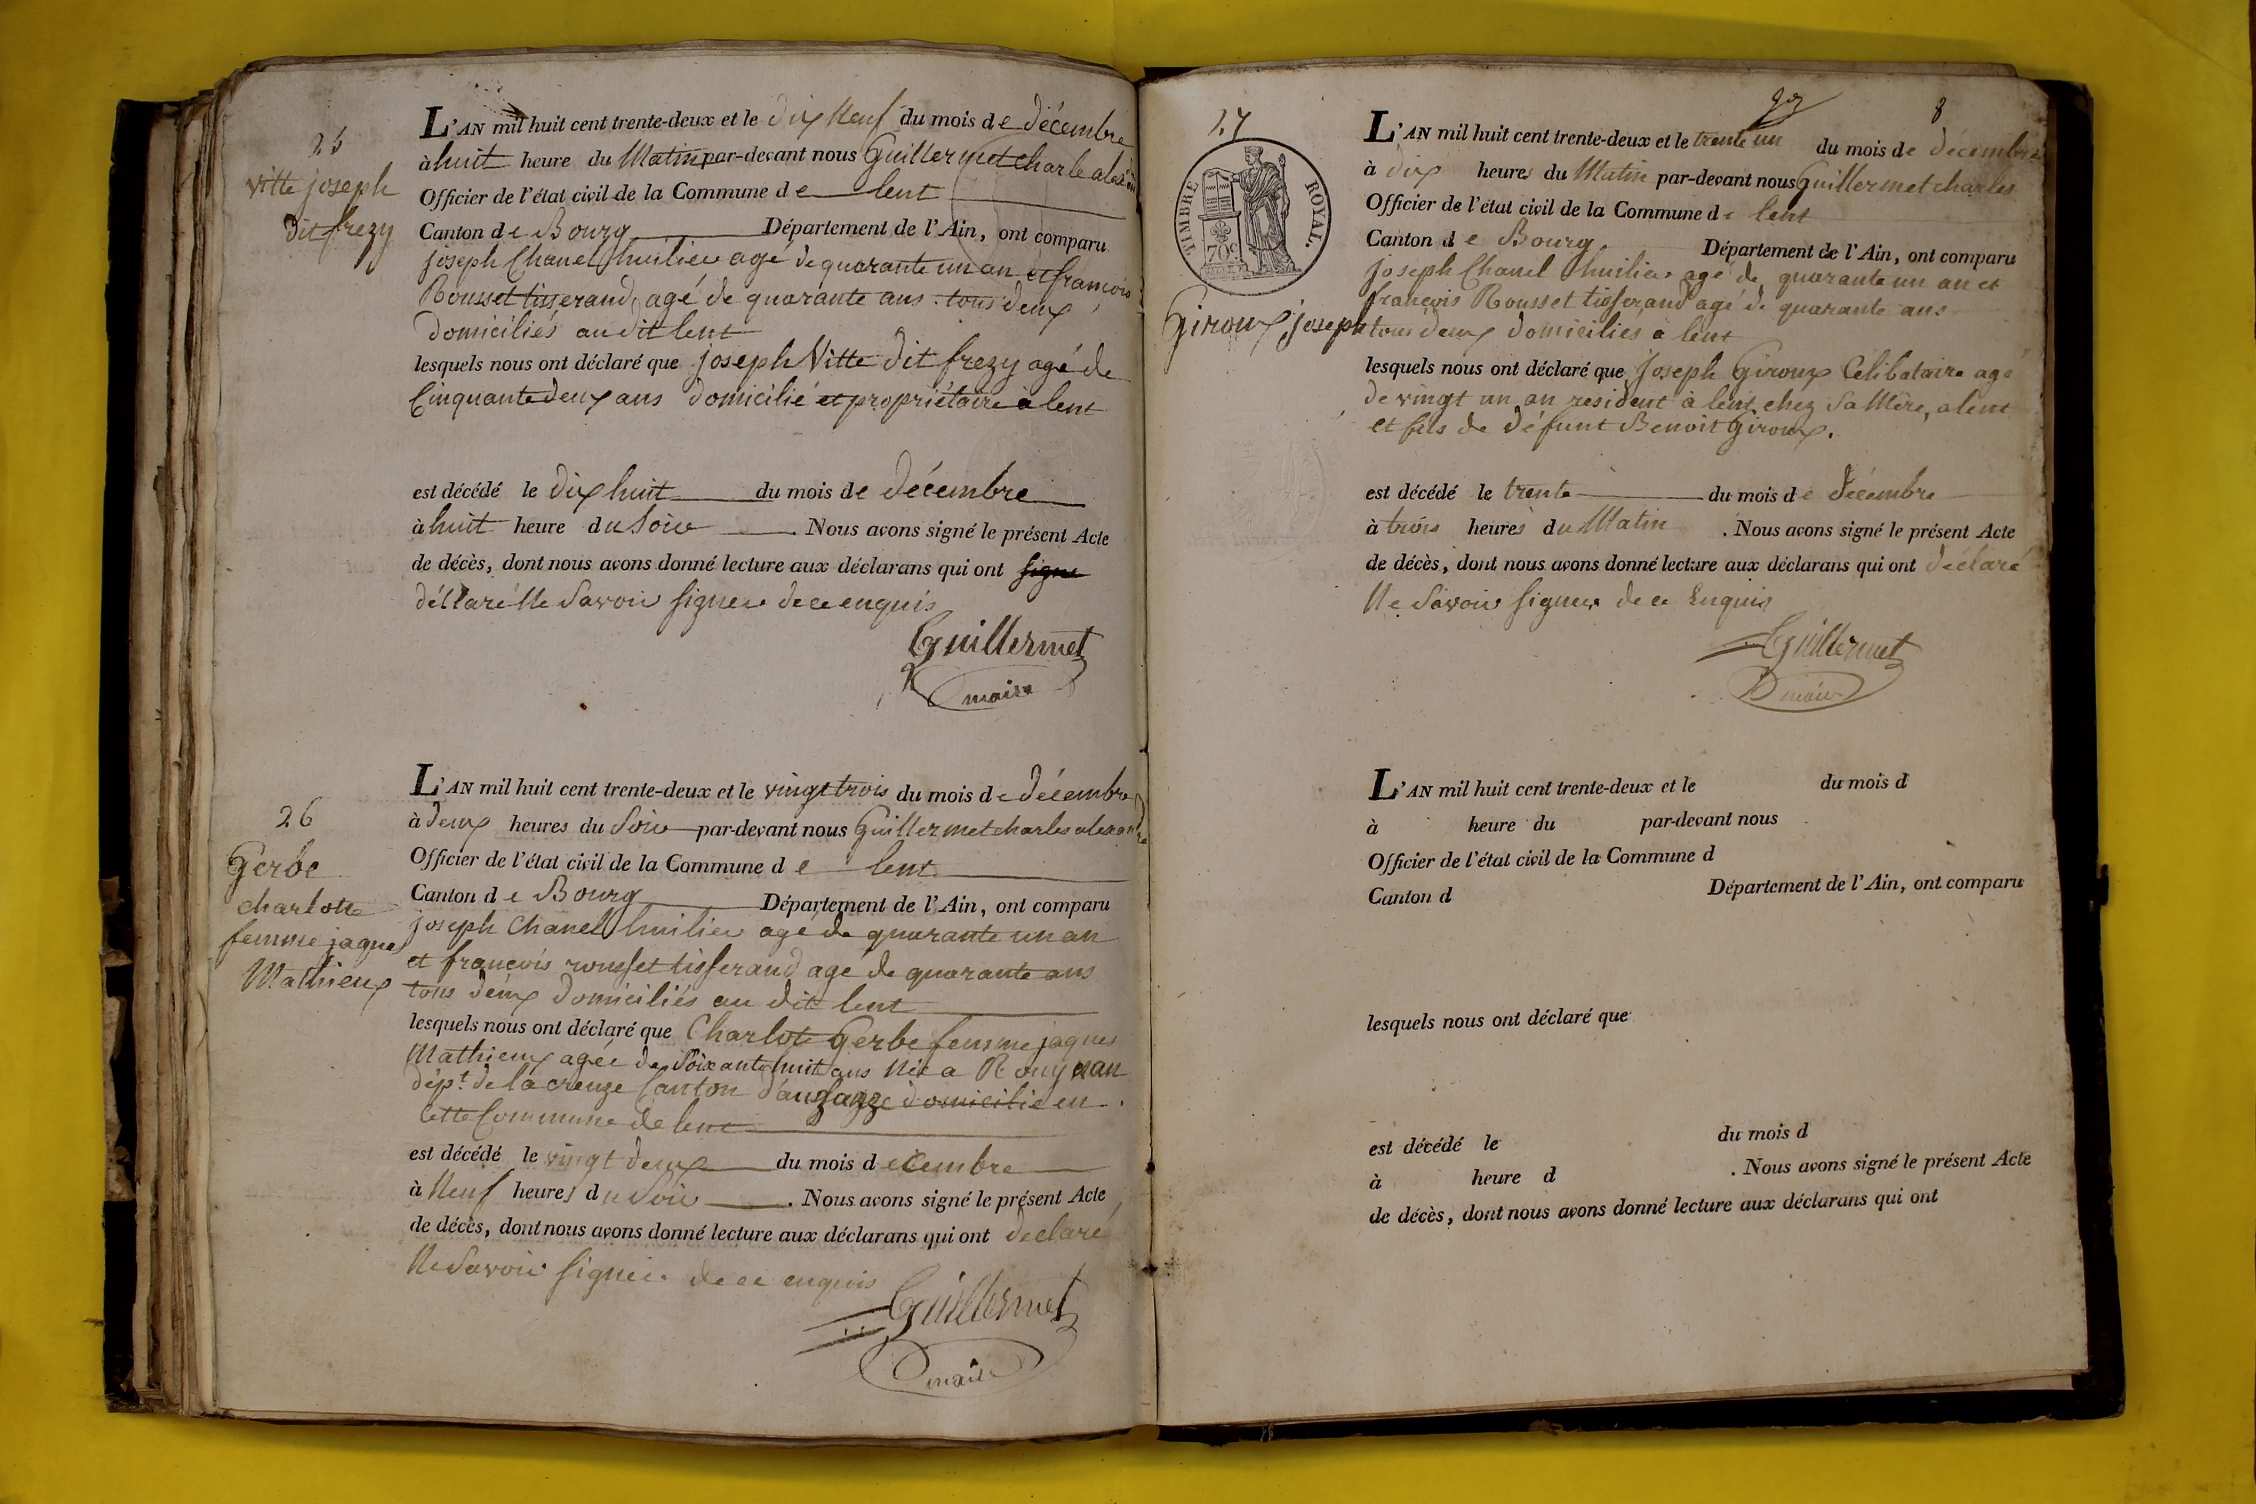 25
Vitte joseph
dit frezy
L'AN mil huit cent trente-deux et le dix Neuf du mois de décembre
à huit heure du Matin par-devant nous Guillermet charle
Officier de l'état civil de la Commune de lent
Canton de Bourg Département de l'Ain, ont comparu
joseph Chanel huilier agé de quarante un an et françois
Rousset tisserand, agé de quarante ans tous deux
Domiciliés au dit lent
lesquels nous ont déclaré que joseph Vitte dit frezy agé de
Cinquante deux ans Domicilié et propriétaire a lent
est décédé le dix huit du mois de décembre
à huit heure du Soir Nous avons signé le présent Acte
de décès, dont nous avons donné lecture aux déclarans qui ont signé
déclaré Ne Savoir signer de ce enquis
Guillermet
maire
26
Gerbe
charlotte
femme jaques
Mathieux
L'AN mil huit cent trente-deux et le vingt trois du mois de décembre
à deux heures du Soir par-devant nous Guillermet charles alexandre
Officier de l'état civil de la Commune de lent
Canton de Bourg Département de l'Ain, ont comparu
joseph Chanel huilier agé de quarante un an
et françois rousset tisserand agé de quarante ans
tous deux Domiciliés au dit lent
lesquels nous ont déclaré que Charlote Gerbe femme jaques
Mathieux agée de Soixante huit ans Née a
dépt de la creuze Canton domicilié en
cette Commune de lent
est décédé le vingt deux du mois decembre
à Neuf heures du Soir . Nous avons signé le présent Acte
de décès, dont nous avons donné lecture aux déclarans qui ont declaré
Ne Savoir signer de ce enquis
Guillermet
maire
27
TIMBRE ROYAL.
70c
Giroux joseph
8
L'AN mil huit cent trente-deux et le trente un du mois de décembre
à dix heures du Matin par-devant nous Guillermet charles
Officier de l'état civil de la Commune de lent
Canton de Bourg Département de l'Ain, ont comparu
joseph Chanel huilier agé de quarante un an et
françois Rousset tisserand agé de quarante ans
tous deux domiciliés a lent
lesquels nous ont déclaré que Joseph Giroux Célibataire agé
de vingt un an résident a lent chez Sa Mère, a lent
et fils de défunt Benoit Giroux.
est décédé le trente du mois de décembre
à trois heures du Matin . Nous avons signé le présent Acte
de décès, dont nous avons donné lecture aux déclarans qui ont déclaré
Ne Savoir signer de ce Enquis
Guillermet
maire
L'AN mil huit cent trente-deux et le du mois d
à heure du par-devant nous
Officier de l'état civil de la Commune d
Canton d Département de l'Ain, ont comparu
lesquels nous ont déclaré que
est décédé le du mois d
à heure d . Nous avons signé le présent Acte
de décès, dont nous avons donné lecture aux déclarans qui ont